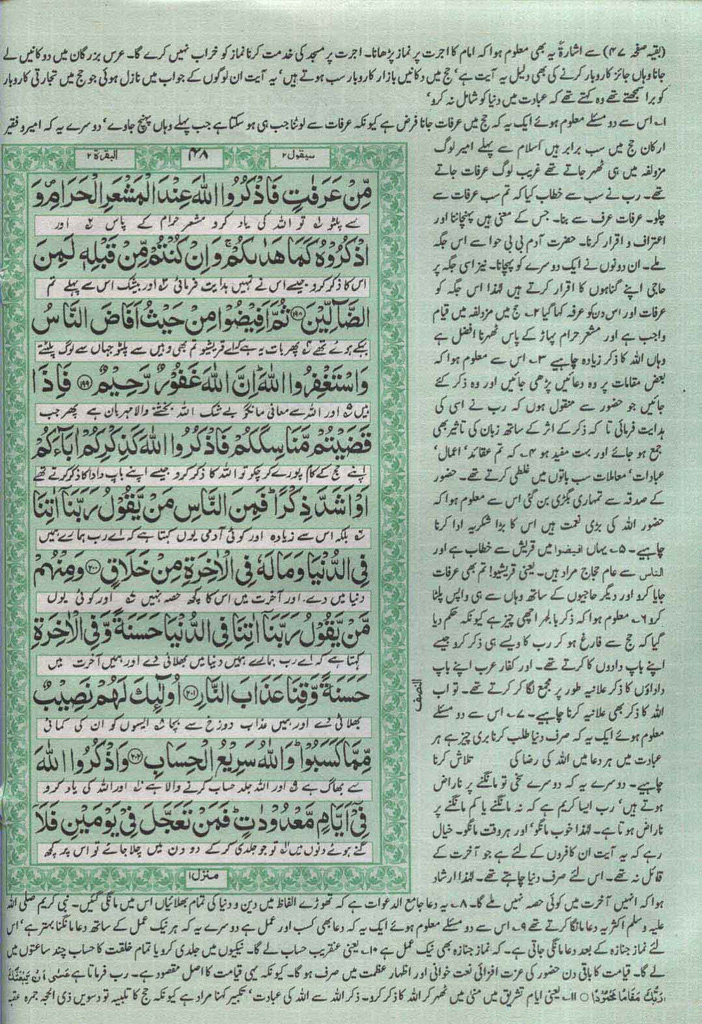 (بقیہ صفحہ ۴۷) سے اشارۃً یہ بھی معلوم ہوا کہ امام کا اجرت پر نماز پڑھانا۔ اجرت پر مسجد کی خدمت کرنا نماز کو خراب نہیں کرے گا۔ عرس بزرگان میں دوکانیں لے
جانا وہاں جائز کاروبار کرنے کی بھی دلیل یہ آیت ہے' حج میں دکانیں بازار کاروبار سب ہوتے ہیں' یہ آیت ان لوگوں کے جواب میں نازل ہوئی جو حج میں تجارتی کاروبار
کو برا سمجھتے تھے وہ کہتے تھے کہ عبادت میں دنیا کو شامل نہ کرو'
۱۔ اس سے دو مسئلے معلوم ہوئے ایک یہ کہ حج میں عرفات جانا فرض ہے کیونکہ عرفات سے لوٹنا جب ہی ہو سکتا ہے جب پہلے وہاں پہنچ جاوے' دوسرے یہ کہ امیر و فقیر
ارکان حج میں سب برابر ہیں اسلام سے پہلے امیر لوگ
مزدلفہ میں ہی ٹھہر جاتے تھے غریب لوگ عرفات جاتے
تھے۔ رب نے سب سے خطاب کیا کہ تم سب عرفات سے
چلو۔ عرفات عرف سے بنا۔ جس کے معنی ہیں پہچاننا اور
اعتراف و اقرار کرنا۔ حضرت آدم بی بی حوا سے اس جگہ
ملے۔ ان دونوں نے ایک دوسرے کو پہچانا۔ نیز اسی جگہ پر
حاجی اپنے گناہوں کا اقرار کرتے ہیں لہٰذا اس جگہ کو
عرفات اور اس دن کو عرفہ کہا گیا ۲۔ حج میں مزدلفہ میں قیام
واجب ہے اور مشعر حرام پہاڑ کے پاس ٹھہرنا افضل ہے
وہاں اللہ کا ذکر زیادہ چاہیے ۳۔ اس سے معلوم ہوا کہ
بعض مقامات پر وہ دعائیں پڑھی جائیں اور وہ ذکر کئے
جائیں جو حضور سے منقول ہوں کہ رب نے اسی کی
ہدایت فرمائی تا کہ ذکر کے اثر کے ساتھ زبان کی تاثیر بھی
جمع ہو جائے اور بہت مفید ہو ۴۔ کہ تم عقائد' اعمال'
عبادات' معاملات سب باتوں میں غلطی کرتے تھے۔ حضور
کے صدقہ سے تمہاری بگڑی بن گئی اس سے معلوم ہوا کہ
حضور اللہ کی بڑی نعمت ہیں اس کا بڑا شکریہ ادا کرنا
چاہیے۔ ۵۔ یہاں افیضوا میں قریش سے خطاب ہے اور
الناس سے عام حجاج مراد ہیں۔ یعنی قریشیو! تم بھی عرفات
جایا کرو اور دیگر حاجیوں کے ساتھ وہاں سے ہی واپس پلٹا
کرو ۶۔ معلوم ہوا کہ ذکر بالجہر اچھی چیز ہے کیونکہ حکم دیا
گیا کہ حج سے فارغ ہو کر رب کا ویسے ہی ذکر کرو جیسے
اپنے باپ دادوں کا کرتے تھے۔ اور کفار عرب اپنے باپ
داداؤں کا ذکر علانیہ طور پر مجمع لگا کر کرتے تھے۔ تو اب
اللہ کا ذکر بھی علانیہ کرنا چاہیے۔ ۷۔ اس سے دو مسئلے
معلوم ہوئے ایک یہ کہ صرف دنیا طلب کرنا بری چیز ہے ہر
عبادت میں ہر دعا میں اللہ کی رضا کی تلاش کرنا
چاہیے۔ دوسرے یہ کہ دوسرے سخی تو مانگنے پر ناراض
ہوتے ہیں' رب ایسا کریم ہے کہ نہ مانگنے یا کم مانگنے پر
ناراض ہوتا ہے۔ لہٰذا خوب مانگو' اور ہر وقت مانگو۔ خیال
رہے کہ یہ آیت ان کافروں کے لئے ہے جو آخرت کے
قائل نہ تھے۔ اس لئے صرف دنیا چاہتے تھے۔ لہٰذا ارشاد
سیقول ۲ ۴۸ البقرۃ ۲
مِّنْ عَرَفٰتٍ فَاذْكُرُوا اللّٰهَ عِنْدَ الْمَشْعَرِ الْحَرَامِ وَ
سے پلٹو تو اللہ کی یاد کرو مشعر حرام کے پاس اور
اذْكُرُوْهُ كَمَا هَدٰىكُمْ وَاِنْ كُنْتُمْ مِّنْ قَبْلِهٖ لَمِنَ
اس کا ذکر کرو جیسے اس نے تمہیں ہدایت فرمائی اور بیشک اس سے پہلے تم
الضَّآلِّيْنَ ۱۹۸ ثُمَّ اَفِيْضُوْا مِنْ حَيْثُ اَفَاضَ النَّاسُ
بہکے ہوئے تھے پھر بات یہ ہے کہ اے قریشیو تم بھی وہیں سے پلٹو جہاں سے لوگ پلٹتے
وَاسْتَغْفِرُوا اللّٰهَ اِنَّ اللّٰهَ غَفُوْرٌ رَّحِيْمٌ ۱۹۹ فَاِذَا
ہیں اور اللہ سے معافی مانگو بے شک اللہ بخشنے والا مہربان ہے پھر جب
قَضَيْتُمْ مَّنَاسِكَكُمْ فَاذْكُرُوا اللّٰهَ كَذِكْرِكُمْ اٰبَآءَكُمْ
اپنے حج کے کام پورے کر چکو تو اللہ کا ذکر کرو جیسے اپنے باپ دادا کا ذکر کرتے تھے
اَوْ اَشَدَّ ذِكْرًا فَمِنَ النَّاسِ مَنْ يَّقُوْلُ رَبَّنَا اٰتِنَا
بلکہ اس سے زیادہ اور کوئی آدمی یوں کہتا ہے کہ اے رب ہمارے ہمیں
فِى الدُّنْيَا وَمَا لَهٗ فِى الْاٰخِرَةِ مِنْ خَلَاقٍ ۲۰۰ وَمِنْهُمْ
دنیا میں دے۔ اور آخرت میں اس کا کچھ حصہ نہیں اور کوئی یوں
مَّنْ يَّقُوْلُ رَبَّنَا اٰتِنَا فِى الدُّنْيَا حَسَنَةً وَّفِى الْاٰخِرَةِ
کہتا ہے کہ اے رب ہمارے ہمیں دنیا میں بھلائی دے اور ہمیں آخرت میں
حَسَنَةً وَّقِنَا عَذَابَ النَّارِ ۲۰۱ اُولٰٓئِكَ لَهُمْ نَصِيْبٌ
بھلائی دے اور ہمیں عذاب دوزخ سے بچا ایسوں کو ان کی کمائی
مِّمَّا كَسَبُوْا وَاللّٰهُ سَرِيْعُ الْحِسَابِ ۲۰۲ وَاذْكُرُوا اللّٰهَ
سے بھاگ ہے اور اللہ جلد حساب کرنے والا ہے اور اللہ کی یاد کرو
فِىْٓ اَيَّامٍ مَّعْدُوْدٰتٍ فَمَنْ تَعَجَّلَ فِىْ يَوْمَيْنِ فَلَآ
گنے ہوئے دنوں میں تو جو جلدی کر کے دو دن میں چلا جائے تو اس پر کچھ
منزل ۱
النصف
ہوا کہ انہیں آخرت میں کوئی حصہ نہیں ملے گا۔ ۸۔ یہ دعا جامع الدعوات ہے کہ تھوڑے الفاظ میں دین و دنیا کی تمام بھلائیاں اس میں مانگی گئیں۔ نبی کریم صلی اللہ
علیہ وسلم اکثر یہ دعا مانگا کرتے تھے ۹۔ اس سے دو مسئلے معلوم ہوئے ایک یہ کہ دعا بھی کسب اور عمل ہے دوسرے یہ کہ ہر نیک عمل کے ساتھ دعا مانگنا بہتر ہے' اس
لئے نماز جنازہ کے بعد دعا مانگی جاتی ہے۔ کہ نماز جنازہ بھی نیک عمل ہے ۱۰۔ یعنی عنقریب حساب لے گا۔ نیکیوں میں جلدی کرو یا تمام خلقت کا حساب چند ساعتوں میں
لے گا۔ قیامت کا باقی دن حضور کی عزت افزائی نعت خوانی اور اظہار عظمت میں صرف ہو گا۔ کیونکہ یہی قیامت کا اصل مقصود ہے۔ رب فرماتا ہے عَسٰی اَنْ یَّبْعَثَکَ
رَبُّکَ مَقَامًا مَّحْمُوْدًا ○ ۱۱۔ یعنی ایام تشریق میں منیٰ میں ٹھہر کر اللہ کا ذکر کرو۔ ذکر اللہ سے اللہ کی عبادت' تکبیر کہنا مراد ہے کیونکہ حج کا تلبیہ تو دسویں ذی الحجہ جمرہ عقبہ